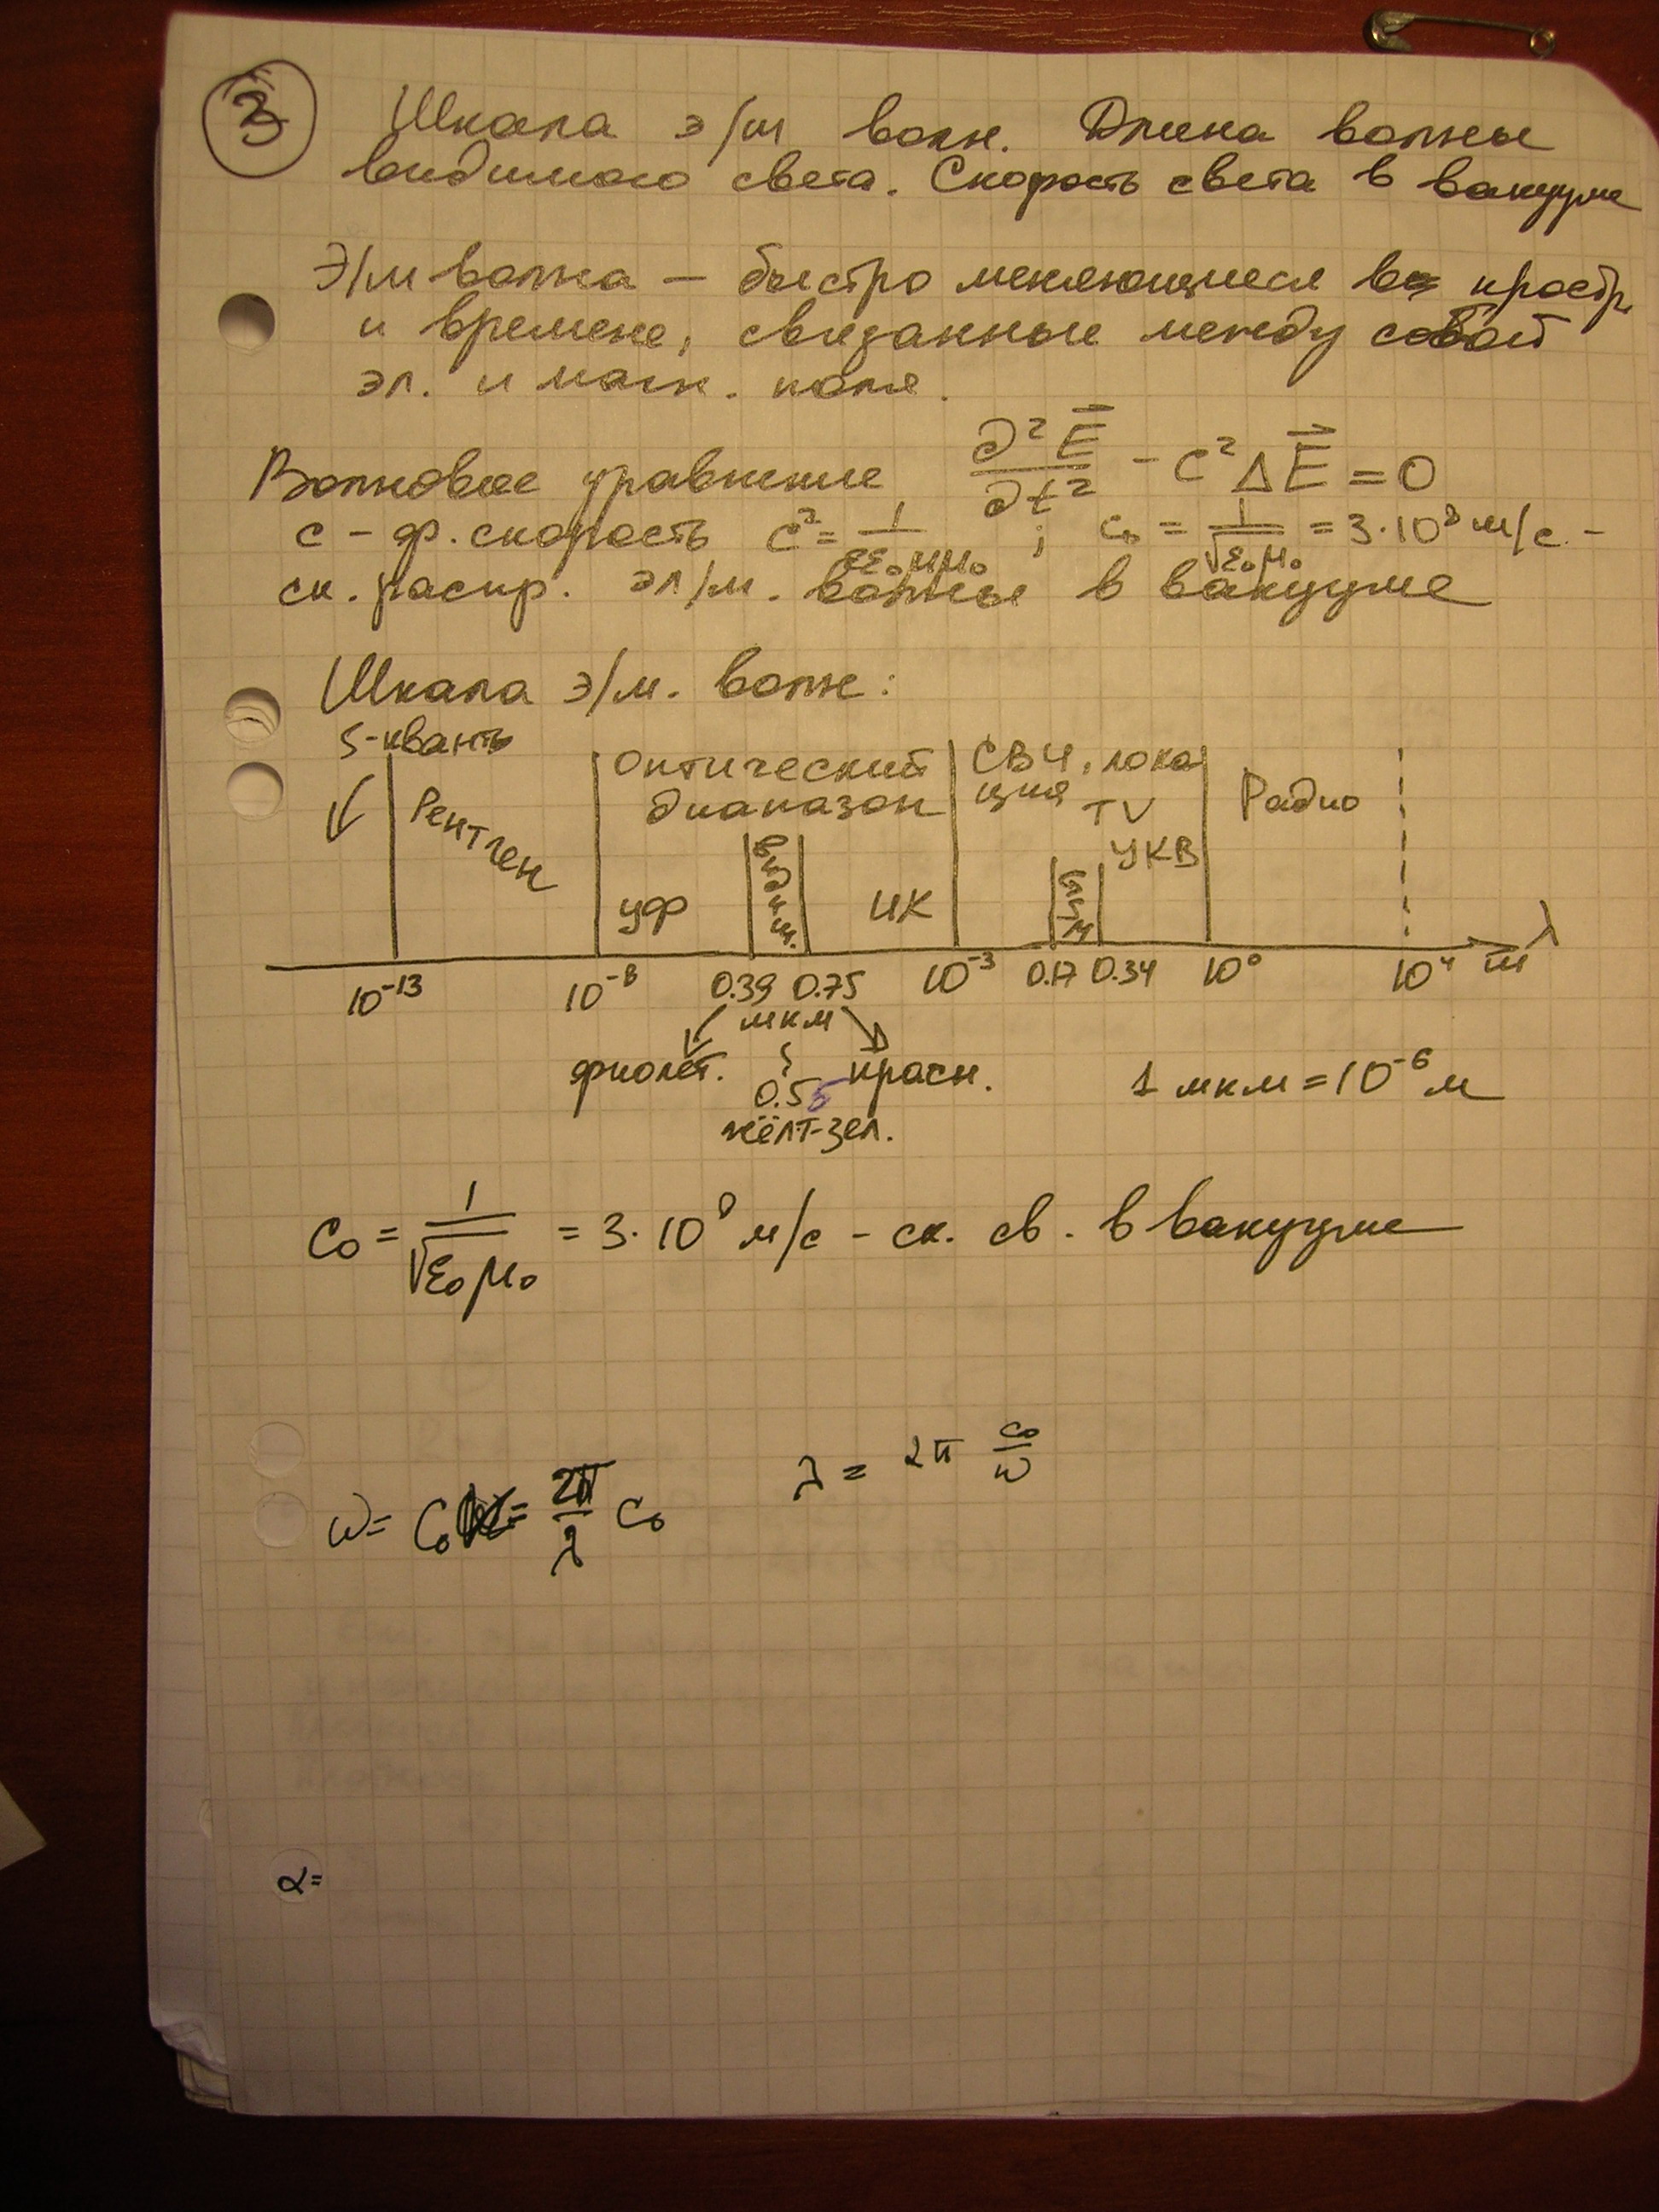 3 Шкала э/м волн. Длина волны
видимого света. Скорость света в вакууме
Э/м волна — быстро меняющиеся в простр.
и времени, связанные между собой
эл. и магн. поля.
Волновое уравнение ∂²E⃗/∂t² - c²ΔE⃗ = 0
c - ф. скорость c² = 1/εε₀μμ₀ ; c₀ = 1/√ε₀μ₀ = 3·10⁸ м/с. -
ск. распр. эл/м. волны в вакууме
Шкала э/м. волн:
-кванты
Рентген
Оптический
диапазон
СВЧ, лока
ция TV
Радио
УФ
видим.
ИК
УКВ
λ
10⁻¹³ 10⁻⁸ 0.39 0.75 10⁻³ 0.17 0.34 10⁰ 10⁴ м
мкм
фиолет. красн.
0.55
жёлт-зел.
1 мкм = 10⁻⁶ м
c₀ = 1/√ε₀μ₀ = 3·10⁸ м/с - ск. св. в вакууме
λ = 2π c₀/ω
ω = c₀k = 2π/λ c₀
α=